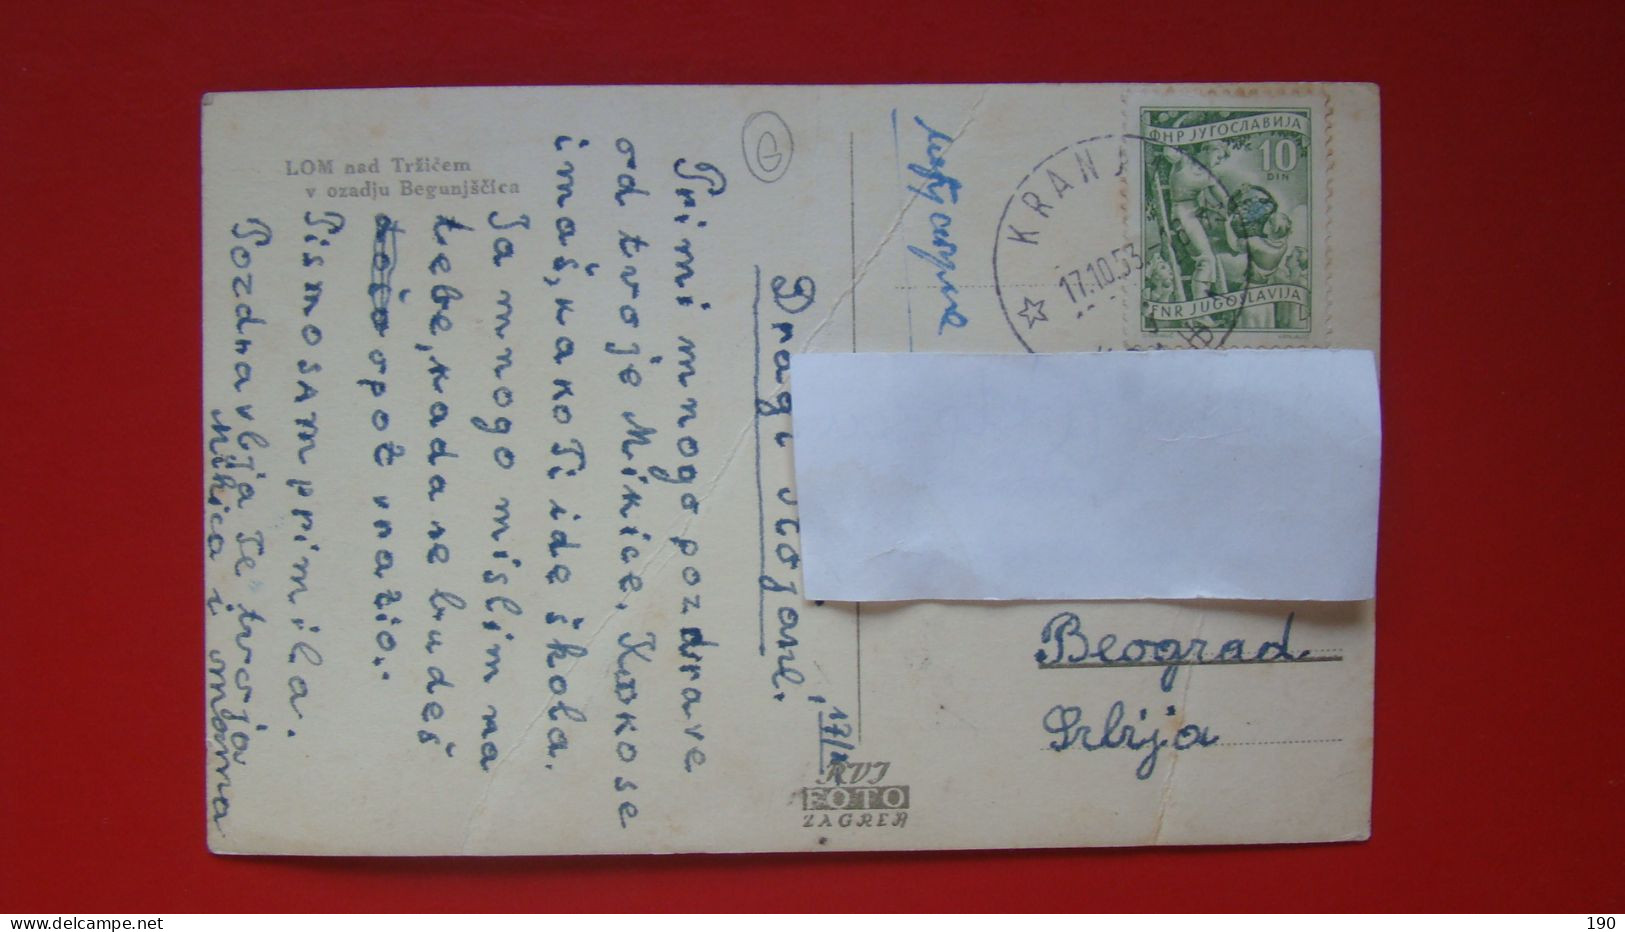 LOM nad Tržičem
v ozadju Begunjščica
Dragi Stojane.
Primi mnogo pozdrave
od tvoje Mikice. Kako se
imaš, kako Ti ide škola.
Ja mnogo mislim na
tebe, kada ne budeš
opet
Pismo sam primila.
Pozdravlja Te tvoja
Mikica i mama
17/X
RVI
FOTO
ZAGREB
KRANJ
17.10.53
ФНР ЈУГОСЛАВИЈА
10
DIN
FNR JUGOSLAVIJA
Beograd
Srbija
190